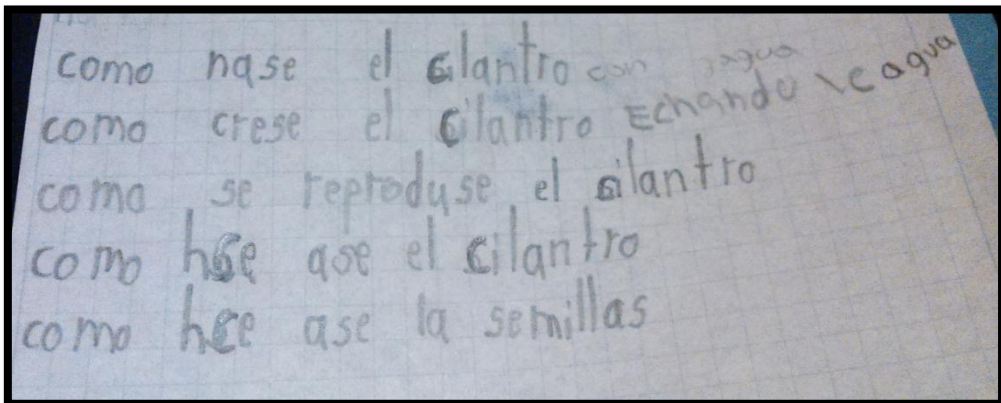 como nase el cilantro con jagua
como crese el cilantro Echando le agua
como se reproduse el silantro
como hse ase el cilantro
como hce ase la semillas